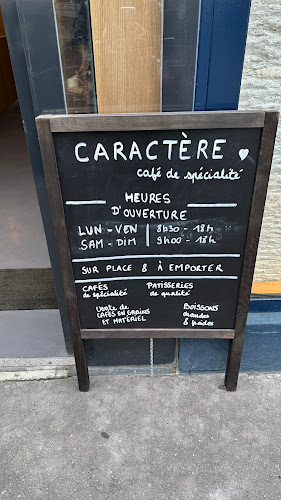 CARACTÈRE
café de spécialité
HEURES
D'OUVERTURE
LUN - VEN 8h30 - 18h
SAM - DIM 9h00 - 18h
SUR PLACE & À EMPORTER
CAFÉS
de spécialité
PATISSERIES
de qualité
Vente de
CAFÉS EN GRAINS
ET MATÉRIEL
BOISSONS
chaudes
& froides